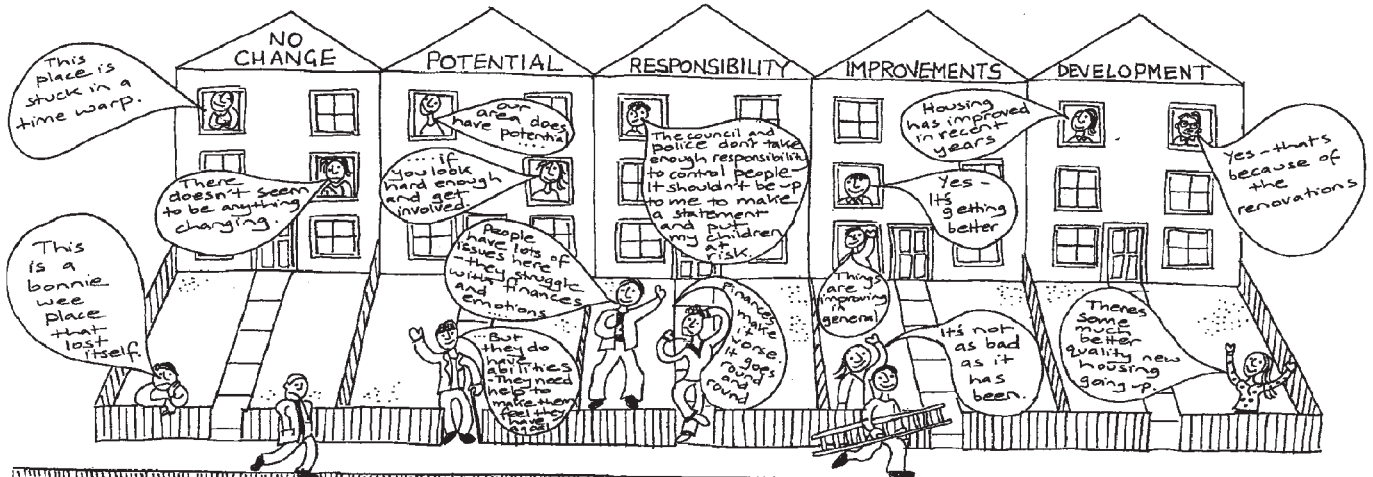 NO
CHANGE
POTENTIAL
RESPONSIBILITY
IMPROVEMENTS
DEVELOPMENT
This
place is
stuck in a
time warp.
There
doesn't seem
to be anything
changing.
This
is a
bonnie
wee
place
that
lost
itself.
our
area does
have potential
......
.... if
you look
hard enough
and get
involved.
People
have lots of
issues here
- they struggle
with finances
and
emotions....
...But
they do
have
abilities
- They need
help to
make them
feel they
have
The council and
police don't take
enough responsibility
to control people -
It shouldn't be up
to me to make
a statement
and put
my children
at
risk.
Finances
make
it
worse.
It goes
round
and
round
Housing
has improved
in recent
years
Yes -
It's
getting
better
Things
are
improving
in
general
It's not
as bad
as it
has
been.
Yes - that's
because of
the
renovations
Theres
some
much
better
quality new
housing
going up.